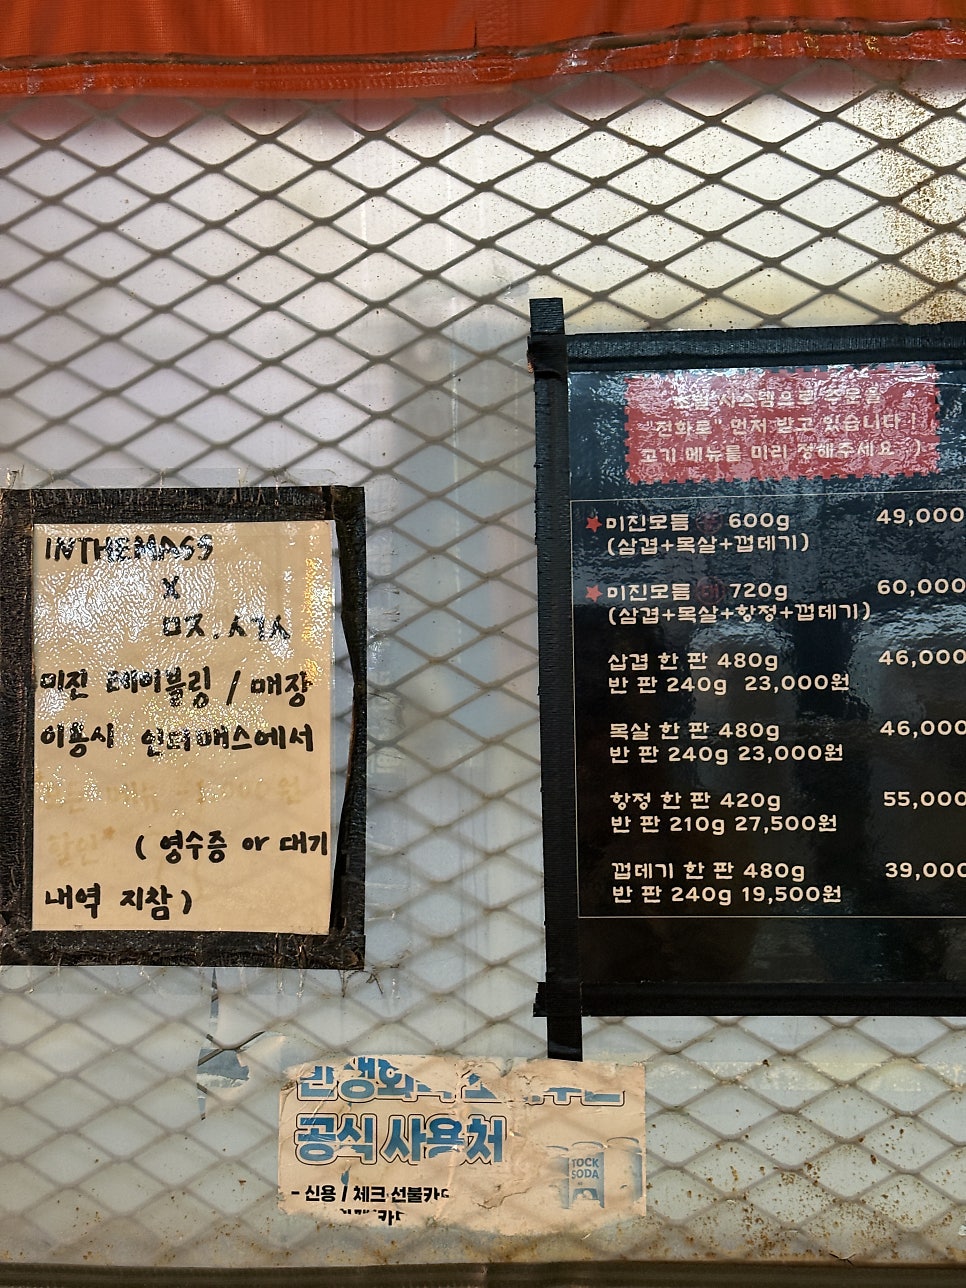 INTHEMASS
X
미진 테이블링 / 매장
이용시 인더매스에서
할인*
( 영수증 or 대기
내역 지참 )
초벌 시스템으로 주문을
"전화로" 먼저 받고 있습니다 !
고기 메뉴를 미리 정해주세요 :)
★미진모듬 600g 49,000
(삼겹+목살+껍데기)
★미진모듬 720g 60,000
(삼겹+목살+항정+껍데기)
삼겹 한 판 480g 46,000
반 판 240g 23,000원
목살 한 판 480g 46,000
반 판 240g 23,000원
항정 한 판 420g 55,000
반 판 210g 27,500원
껍데기 한 판 480g 39,000
반 판 240g 19,500원
공식 사용처
TOCK
SODA
- 신용 / 체크 선불카드